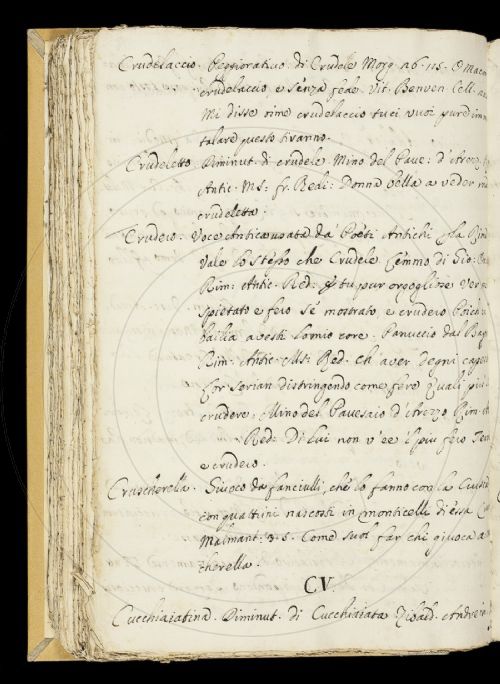 Crudelaccio. Peggiorativo di Crudele Morg. 26. 115. O Macon
crudelaccio e senza fede. Vit. Benven. Cell.
Mi disse oimè crudelaccio tu ci vuoi pure im
talare questo tiranno.
Crudeletto. Diminut. di crudele. Mino del Pave: d'Arezzo
Antic. MS: fr. Redi: Donna bella a veder
crudeletta:
Crudero. Voce Antica usata da Poeti Antichi
Vale lo stesso che Crudele
Rim: Antic. Red: tu pur orgoglioso ver
spietato e fero sè mostrato, e crudero Poich
bailia avesti lo mio core. Panuccio dal Bag
Rim: Antic. MS: Red. Ch'aver degni
Cor Sorian distringendo come fere Quali più
crudere. Mino del Pavesaio d'Arezzo Rim.
Red: Di lui non v'è e l più fero
e crudero.
Cruscherella. Giuoco da fanciulli, che lo fanno con la Crusca
con quattrini nascosti in monticelli d'essa
Malmant. 3. 5. Come suol far chi giuoca a
cherella.
CV.
Cucchiaiatina. Diminut. di Cucchiaiata Zibald. Andreini